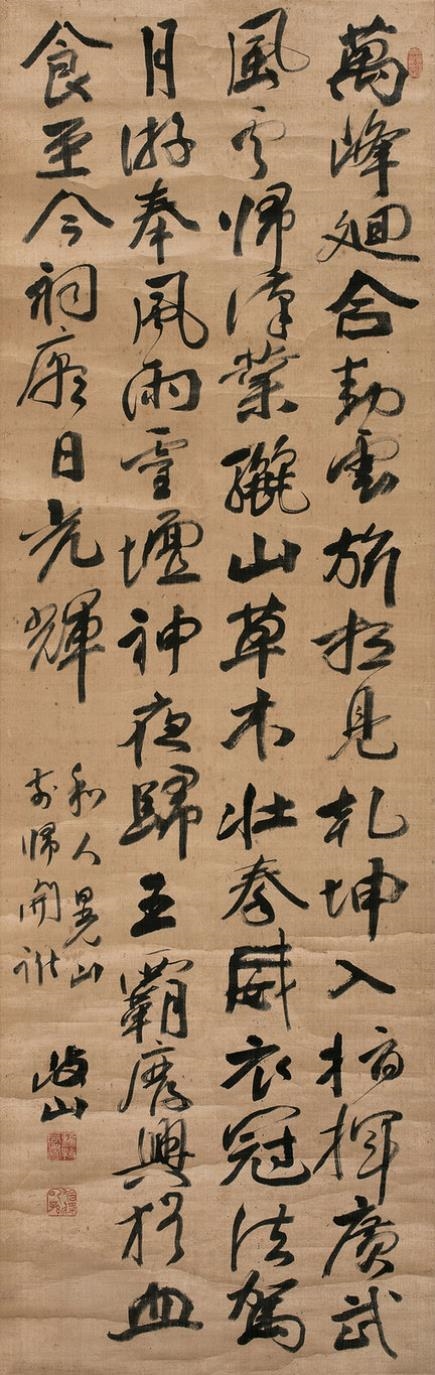 萬峰廻合動雲旂想見乾坤入指揮廣武
風雲歸漢業驪山草木壮秦威衣冠法駕
月游奉風雨壇神夜歸王霸廢興血
食至今祠廟日光輝
和人晃山
歸開
山